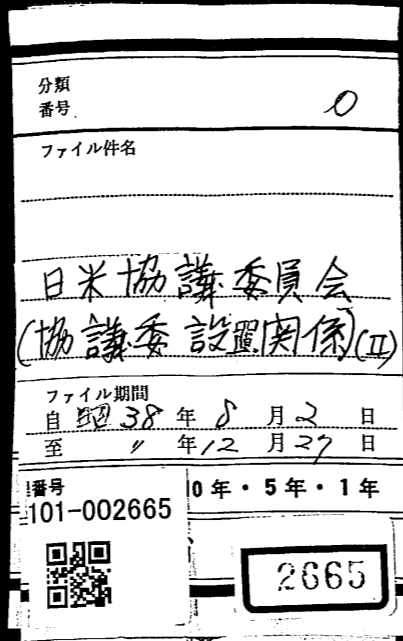 分類
番号 0
ファイル件名
日米協議委員会
(協議委設置関係)(II)
ファイル期間
自 昭38年8月2日
至 〃年12月27日
番号
101-002665
0年・5年・1年
2665